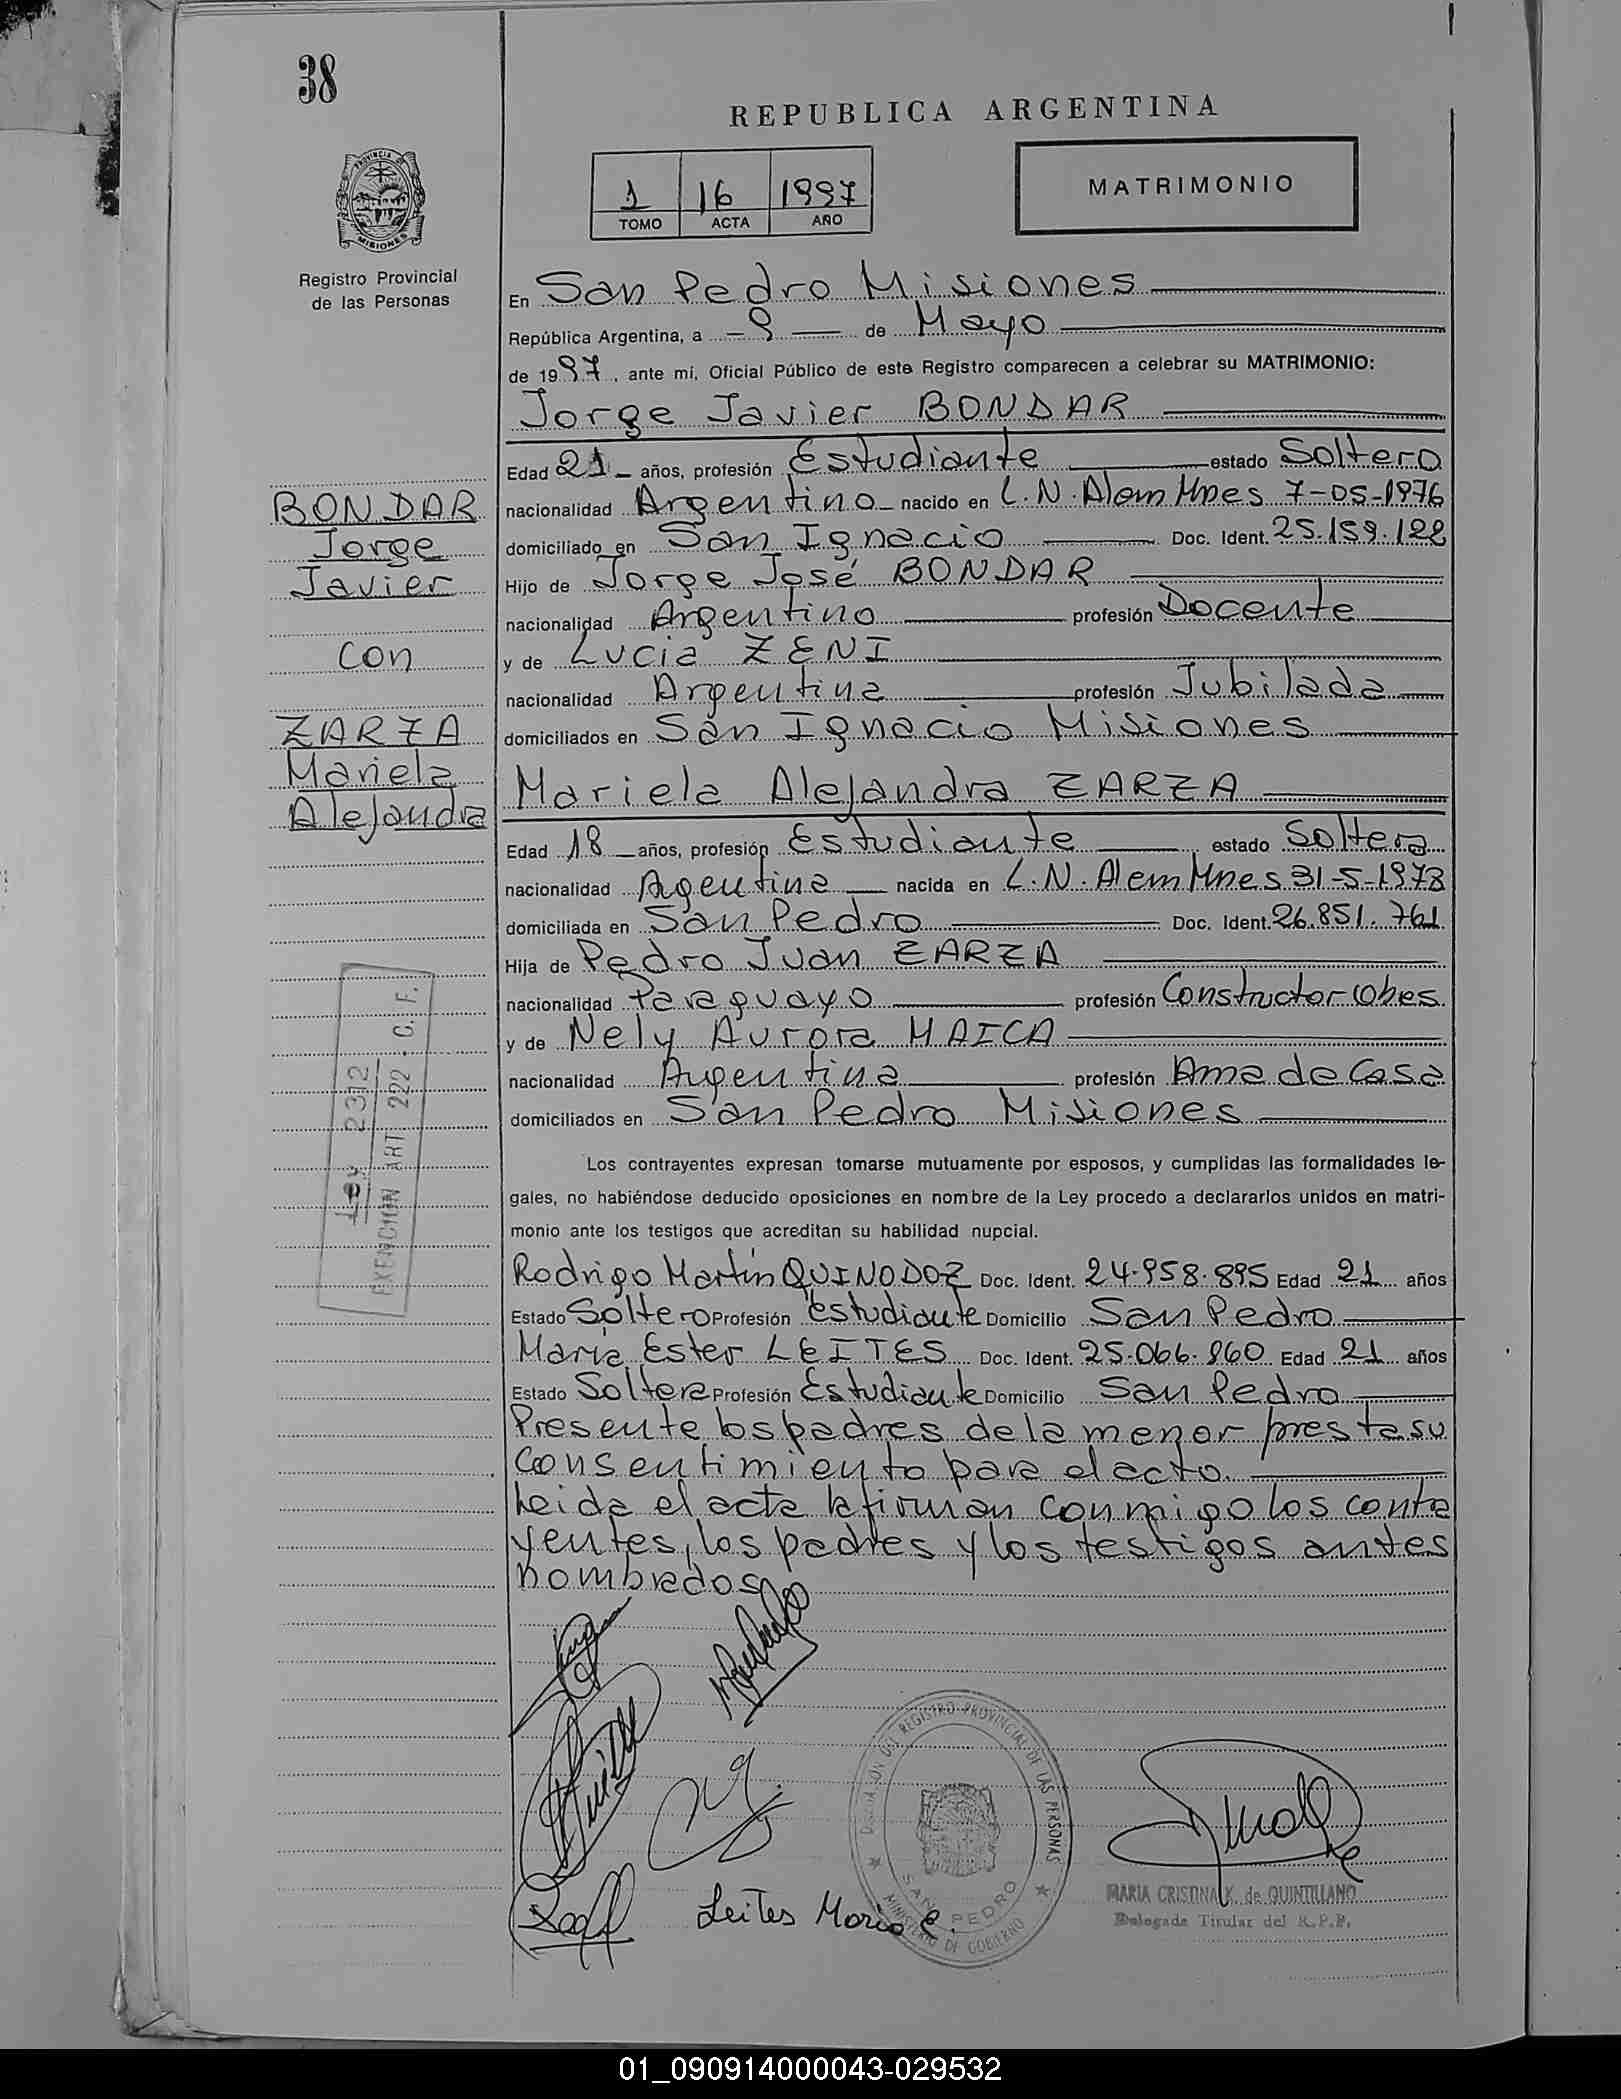 38
REPUBLICA ARGENTINA
1 16 1997
TOMO ACTA AÑO
MATRIMONIO
PROVINCIA DE MISIONES
Registro Provincial
de las Personas
En San Pedro Misiones
República Argentina, a - 9 - de Mayo
de 1997, ante mí, Oficial Público de este Registro comparecen a celebrar su MATRIMONIO:
Jorge Javier BONDAR
Edad 21 años, profesión Estudiante estado Soltero
nacionalidad Argentino nacido en L.N.Alem Mnes 7-05-1976
domiciliado en San Ignacio Doc. Ident. 25.159.122
Hijo de Jorge José BONDAR
nacionalidad Argentino profesión Docente
y de Lucia ZENI
nacionalidad Argentina profesión Jubilada
domiciliados en San Ignacio Misiones
BONDAR
Jorge
Javier
con
ZARZA
Mariela
Alejandra
Mariela Alejandra ZARZA
Edad 18 años, profesión Estudiante estado Soltera
nacionalidad Agentina nacida en L.N.Alem Mnes 31-5-1978
domiciliada en San Pedro Doc. Ident. 26.851.761
Hija de Pedro Juan ZARZA
nacionalidad Paraguayo profesión Constructor Obres
y de Nely Aurora MAICA
nacionalidad Argentina profesión Ama de Casa
domiciliados en San Pedro Misiones
Ley 2312
EXENCION ART 222 C. F.
Los contrayentes expresan tomarse mutuamente por esposos, y cumplidas las formalidades le-
gales, no habiéndose deducido oposiciones en nombre de la Ley procedo a declararlos unidos en matri-
monio ante los testigos que acreditan su habilidad nupcial.
Rodrigo Martín QUINODOZ Doc. Ident. 24.958.895 Edad 21 años
Estado Soltero Profesión estudiante Domicilio San Pedro
María Ester LEITES Doc. Ident. 25.066.860 Edad 21 años
Estado Soltera Profesión Estudiante Domicilio San Pedro
Presente los padres de la menor presta su
consentimiento para el acto.
Leida el acta la firman conmigo los contra
yentes, los padres y los testigos antes
nombrados
Leites Maria E.
DELEGACION DEL REGISTRO PROVINCIAL DE LAS PERSONAS
SAN PEDRO
MINISTERIO DE GOBIERNO
MARIA CRISTINA K. de QUINTILIANO
Delegada Titular del R.P.P.
01_090914000043-029532